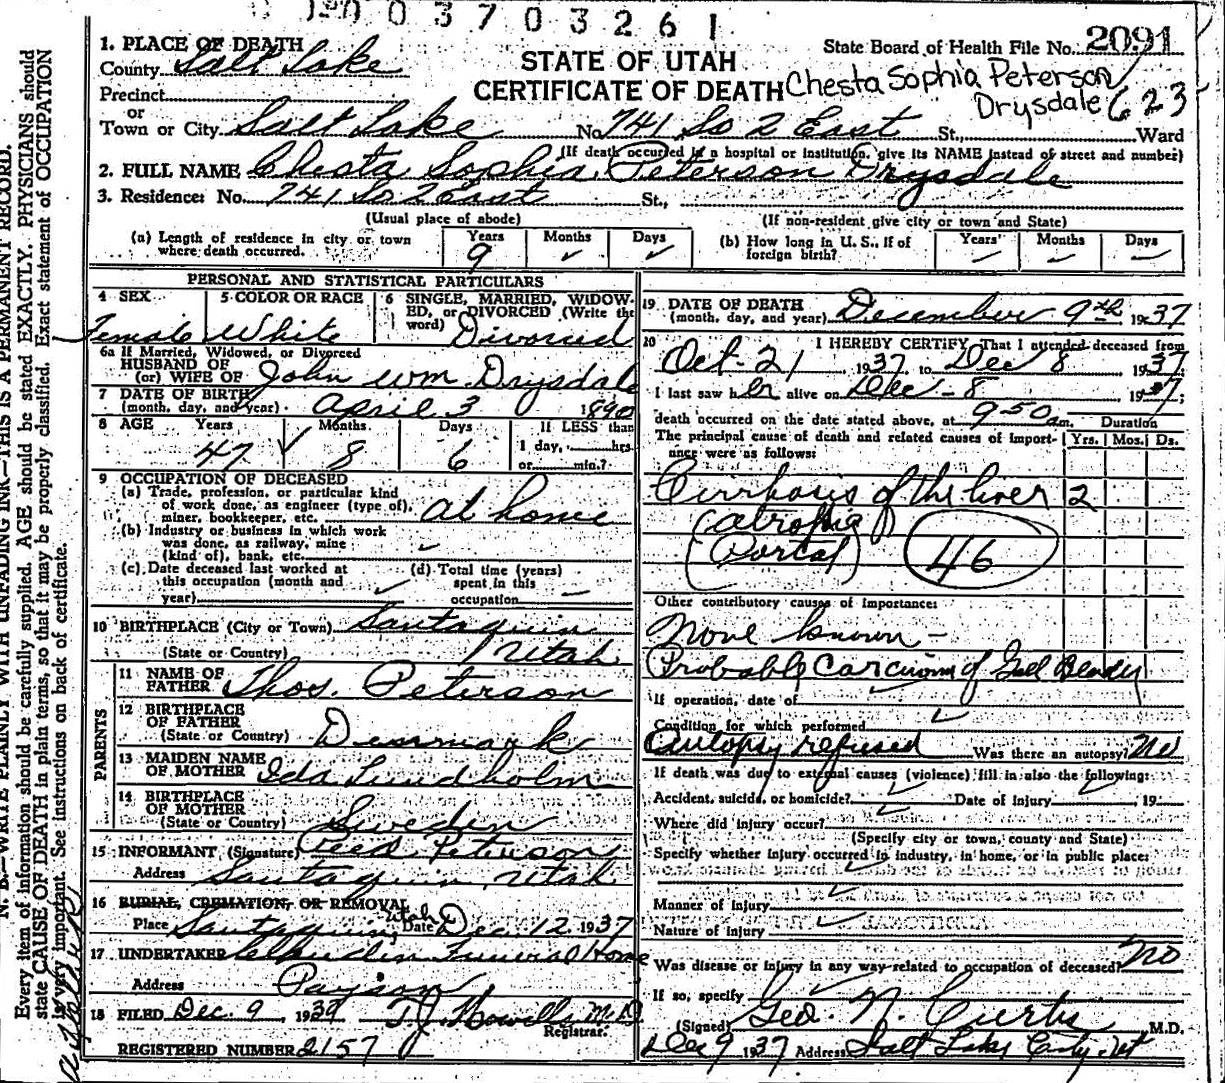 0 0 3 7 0 3 2 6 1
1. PLACE OF DEATH
County Salt Lake
Precinct
or
Town or City Salt Lake No. 741 So 2 East St., Ward
(If death occurred in a hospital or institution, give its NAME instead of street and number)
STATE OF UTAH
CERTIFICATE OF DEATH
State Board of Health File No. 2091
Chesta Sophia Peterson
Drysdale 623
2. FULL NAME Chesta Sophia Peterson Drysdale
3. Residence: No. 741 So 2 East St.,
(Usual place of abode) (If non-resident give city or town and State)
(a) Length of residence in city or town where death occurred. Years 9 Months ✓ Days ✓
(b) How long in U. S., if of foreign birth? Years Months Days
PERSONAL AND STATISTICAL PARTICULARS
4 SEX Female
5 COLOR OR RACE White
6 SINGLE, MARRIED, WIDOWED, or DIVORCED (Write the word) Divorced
6a If Married, Widowed, or Divorced
HUSBAND OF
(or) WIFE OF John Wm. Drysdale
7 DATE OF BIRTH
(month, day, and year) April 3 1890
8 AGE Years 47 Months 8 Days 6 If LESS than
1 day, hrs.
or min.?
9 OCCUPATION OF DECEASED
(a) Trade, profession, or particular kind
of work done, as engineer (type of),
miner, bookkeeper, etc. at home
(b) Industry or business in which work
was done, as railway, mine
(kind of), bank, etc.
(c) Date deceased last worked at
this occupation (month and
year)
(d) Total time (years)
spent in this
occupation
10 BIRTHPLACE (City or Town) Santaquin
(State or Country) Utah
PARENTS
11 NAME OF
FATHER Thos. Peterson
12 BIRTHPLACE
OF FATHER
(State or Country) Denmark
13 MAIDEN NAME
OF MOTHER Ida Lundholm
14 BIRTHPLACE
OF MOTHER
(State or Country) Sweden
15 INFORMANT (Signature) Peterson
Address Santaquin, Utah
16 BURIAL, CREMATION, OR REMOVAL
Place Santaquin, Utah Date Dec. 12 1937
17 UNDERTAKER Funeral Home
Address Payson
18 FILED Dec. 9, 1939 M.D.
Registrar.
REGISTERED NUMBER 2157
19 DATE OF DEATH
(month, day, and year) December 9th 1937
20 I HEREBY CERTIFY, That I attended deceased from
Oct. 21, 1937, to Dec 8, 1937
I last saw her alive on Dec - 8 1937;
death occurred on the date stated above, at 9:50 a m. Duration
The principal cause of death and related causes of importance were as follows: Yrs. Mos. Ds.
Cirrhosis of the liver 2
(atrophic
(Portal) 46
Other contributory causes of importance:
None known -
Probable Carcinoma of Gall Bladder
If operation, date of
Condition for which performed
Autopsy refused Was there an autopsy? No
If death was due to external causes (violence) fill in also the following:
Accident, suicide, or homicide? Date of injury , 19
Where did injury occur?
(Specify city or town, county and State)
Specify whether injury occurred in industry, in home, or in public place:
Manner of injury
Nature of injury
Was disease or injury in any way related to occupation of deceased? No
If so, specify
(Signed) Geo. N. Curtis M.D.
Dec 9 1937 Address Salt Lake City, Ut
N. B.—WRITE PLAINLY WITH UNFADING INK—THIS IS A PERMANENT RECORD.
Every item of information should be carefully supplied. AGE should be stated EXACTLY. PHYSICIANS should
state CAUSE OF DEATH in plain terms, so that it may be properly classified. Exact statement of OCCUPATION
is very important. See instructions on back of certificate.